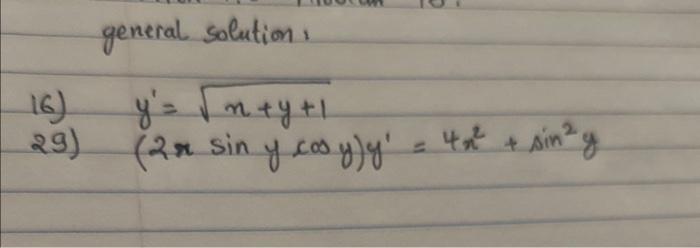 general solution:
16) y' = √x+y+1
29) (2x sin y cos y)y' = 4x² + sin² y